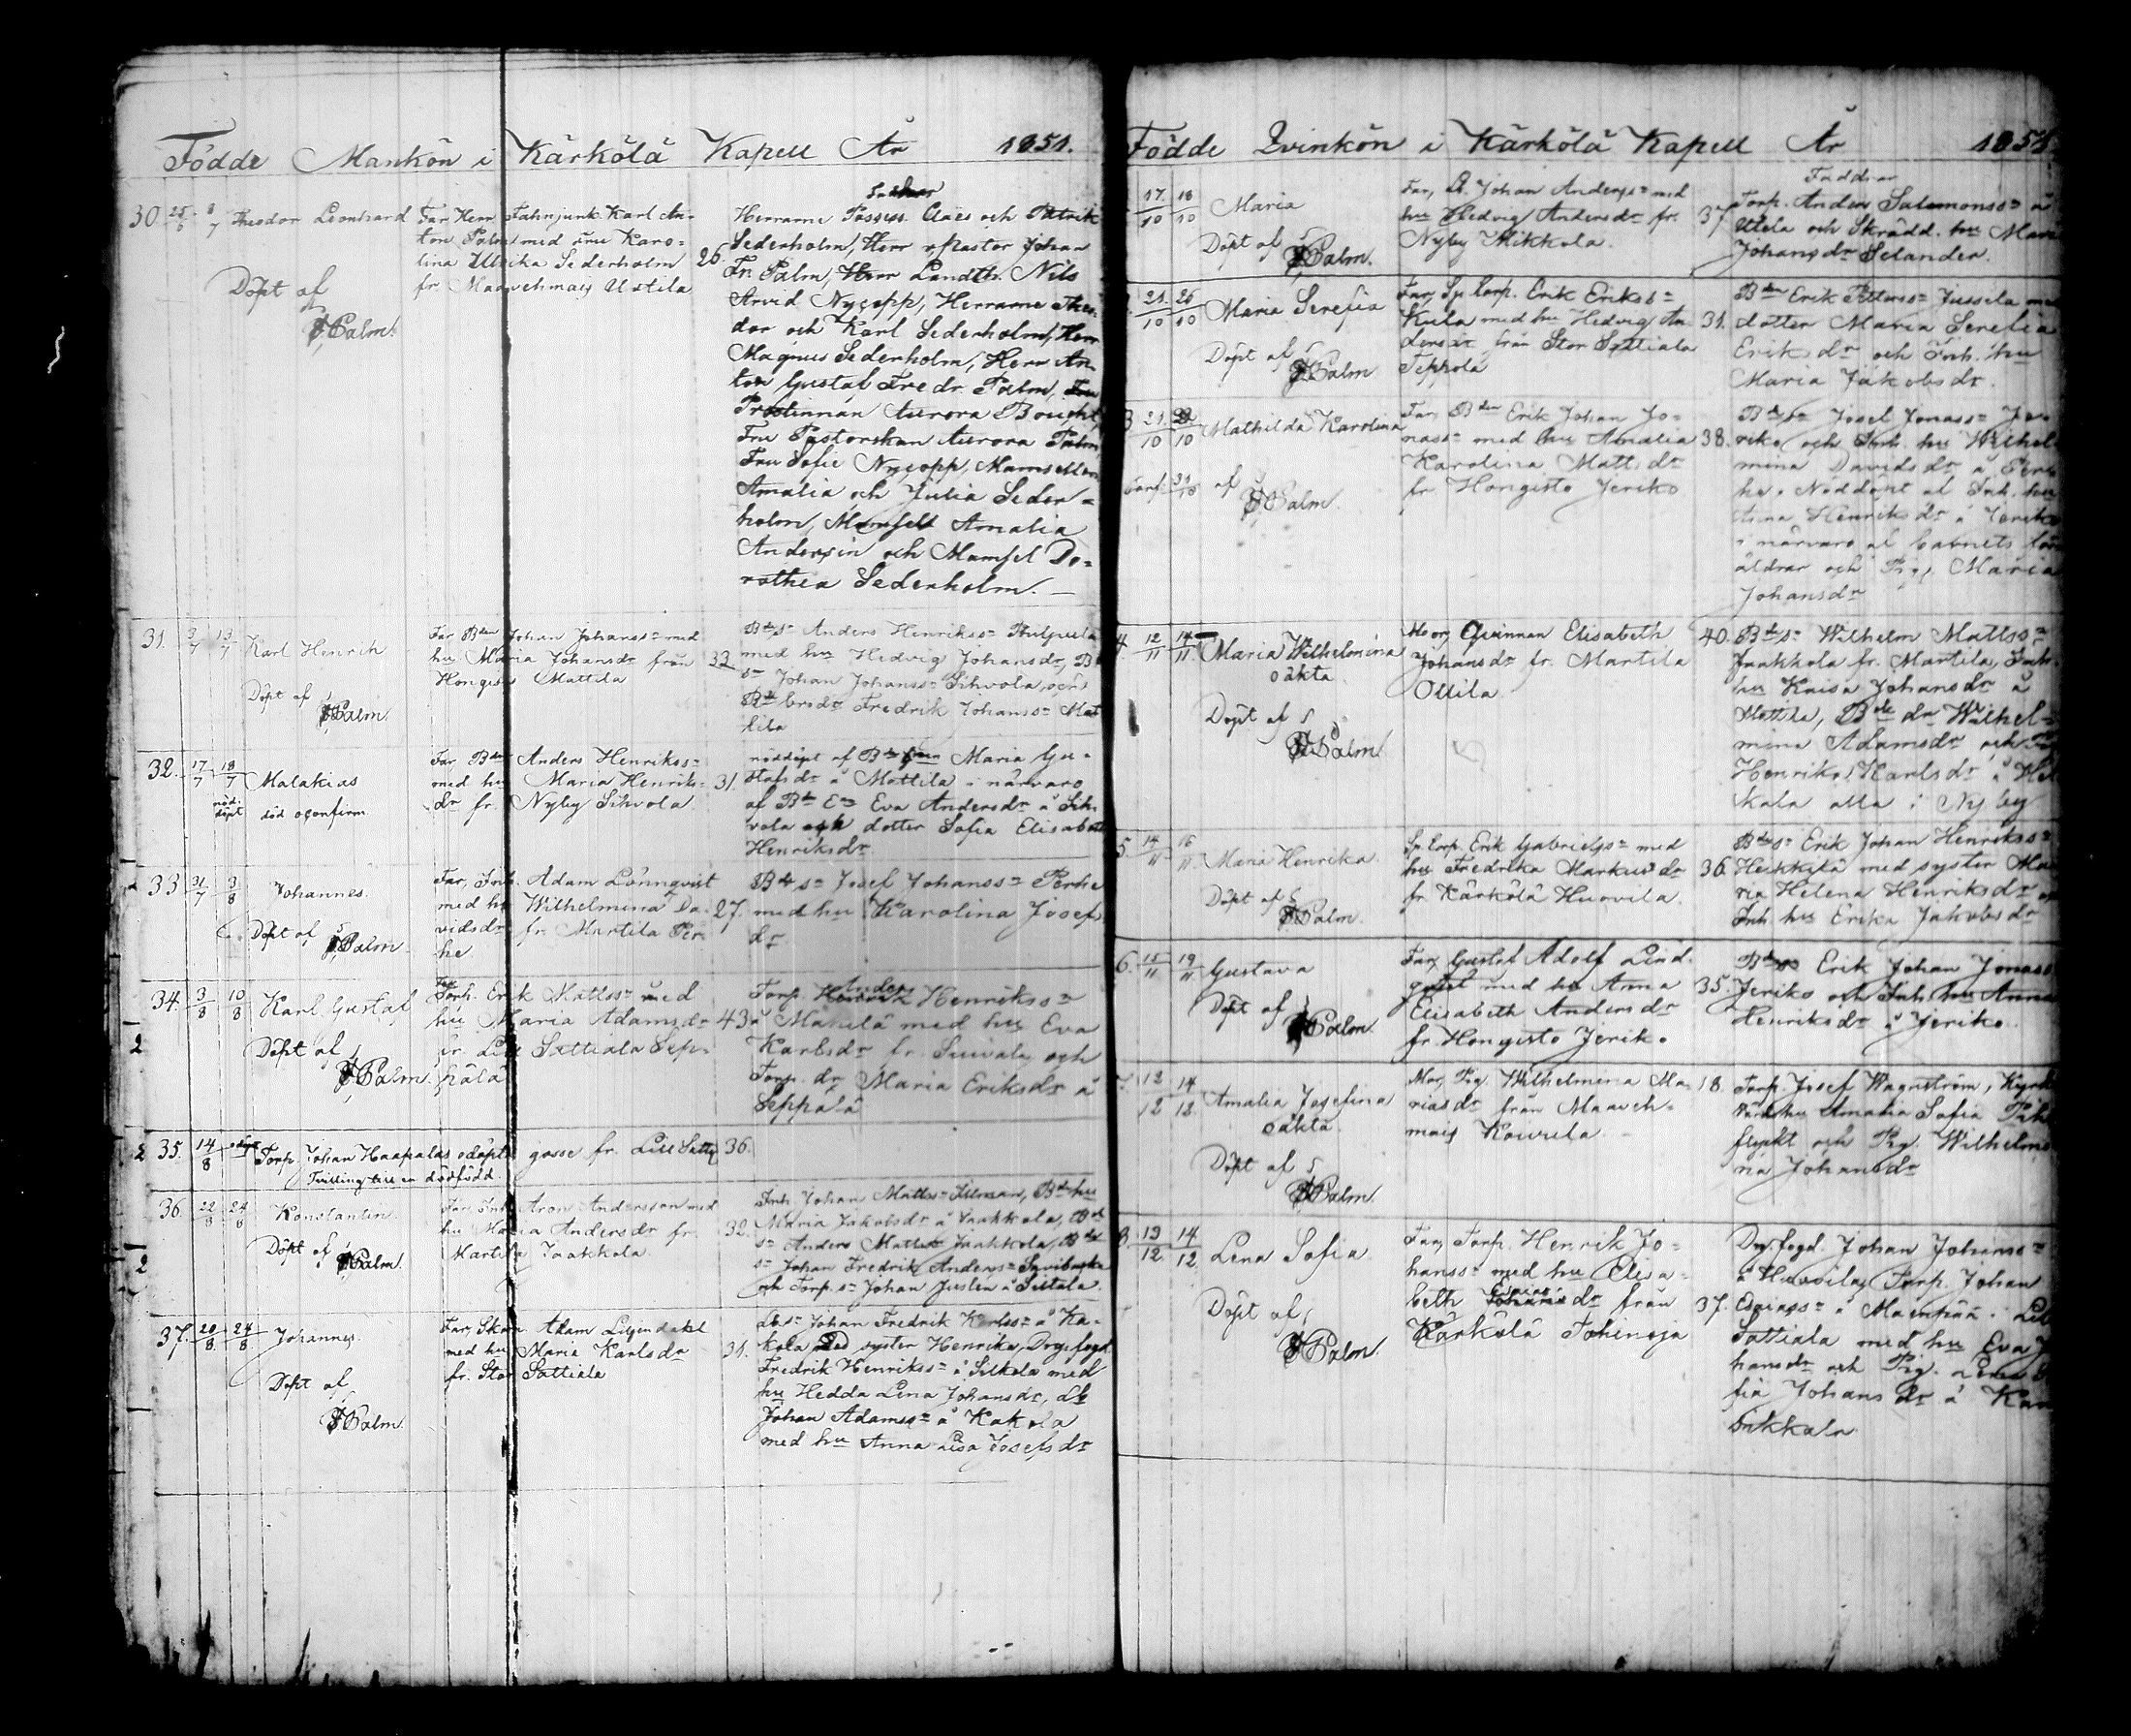 Födde Mankön i Kärkölä Kapell År 1851.
Faddrar
30. 25/6 8/7 Theodor Leonhard
Döpt af
Palm.
Far Herr Fahnjunk. Karl An-
ton Palm med Fru Karo-
lina Ulrika Sederholm
fr. Maavehmais Uotila
26.
Herrarne Possess. Claës och Patrik
Sederholm, Herr Pastor Johan
Fr. Palm, Herr Landth. Nils
Arvid Nycopp, Herrarne Theo-
dor och Karl Sederholm, Herr
Magnus Sederholm, Herr An-
ton Gustaf Fredr. Palm, Fru
Prostinnan Aurora Bought,
Fru Pastorskan Aurora Palm,
Fru Sofie Nycopp, Mamsellerna
Amalia och Julia Seder-
holm, Mamsell Amalia
Andersin och Mamsel Do-
rothea Sederholm. —
31. 3/7 13/7 Karl Henrik
Döpt af
Palm
Far Bden Johan Johanss:n med
hu Maria Johansdr från
Hongisto Mattila
33
Bdes:n Anders Henrikss:n
med hu Hedvig Johansdr, B
s:n Johan Johanss:n Sihvola och
Bde brodr Fredrik Johanss:n Mat
tila
32. 17/7 18/7 Malakias
nöd-
döpt död oconfirm.
Far Bden Anders Henrikss:n
med hu Maria Henriks-
dr fr. Nyby Sihvola
31.
nöddöpt af Maria Gu-
stafsdr å Mattila i närvaro
af Eva Andersdr å Sih-
vola och dotter Sofia Elisabeth
Henriksdr
33 31/7 3/8 Johannes.
Döpt af
Palm
Far, Inh. Adam Lönnqvist
med hu Wilhelmina Da-
vidsdr fr. Martila Per
he
27.
Bde s:n Josef Johanss:n Perhe
med hu Karolina Josefs
dr
34. 3/8 10/8 Karl Gustaf
Döpt af
Palm.
Far
Torp. Erik Mattss:n med
hu Maria Adamsdr
fr. Lill Sattiala Sep-
pälä
43
Anders
Torp. Henrik Henrikss:n
å Mahilä med hu Eva
Karlsdr fr. och
Torp. dr Maria Eriksdr å
Seppälä
35. 14/8 Torp. Johan Haapalas odöpte gosse fr. Lill Satti 36.
Tvilling till en dödfödd.
36. 22/8 24/8 Konstantin
Döpt af
Palm.
Far, Inh. Aron Andersson med
hu Maria Andersdr fr.
Martila Jaakkola
32.
Inh. Johan Mattss:n Ilman, Bde hu
Maria Jakobsdr å Jaakkola, Bde
s:n Anders Mattss Jaakkola, Bde
s:n Johan Fredrik Anderss:n
och Torp. s:n Johan Juslen å
37. 20/8 24/8 Johannes
Döpt af
Palm.
Far, Skom Adam Liljendahl
med hu Maria Karlsdr
fr. Stor Sattiala
31.
Db s:n Johan Fredrik Karlss:n å Ka-
kola med syster Henrika, Dryg.fogd.
Fredrik Henrikss:n å Silkola med
hu Hedda Lena Johansdr, Db
Johan Adamss:n å Kakola
med hu Anna Lisa Josefsdr
Födde Qvinkön i Kärkölä Kapell År 1851
Faddrar
17/10 18/10 Maria
Döpt af
Palm.
Far, Db. Johan Anderss:n med
hu Hedvig Andersdr fr.
Nyby Mikkola.
37
Torp. Anders Salomonss:n å
Utula och Skrädd. hu Maria
Johansdr Selander.
21/10 25/10 Maria Serefia
Döpt af
Palm
Far, Sp. Torp. Erik Erikss:n
Kula med hu Hedvig An
dersdr från Stor Sattiala
Teppola
31.
Bden Erik Petterss:n Jussila med
dotter Maria Serefia
Eriksdr och Inh. hu
Maria Jakobsdr.
3 21/10 Mathilda Karolina
af
Palm.
Far, Bden Erik Johan Jo-
nass:n med hu Amalia
Karolina Mattsdr
fr Hongisto Jeriko
38.
Bdes:n Josef Jonass:n Je-
riko och Inh. hu Wilhel
mina Davidsdr å Per
he. Nöddöpt af Inh. hu
Anna Henriksdr å Jeriko
i närvaro af barnets för
äldrar och Pig. Maria
Johansdr
4. 12/11 14/11 Maria Wilhelmina
oäkta.
Döpt af
Palm
Mor, Qvinnan Elisabeth
Johansdr fr. Martila
Ollila
40.
Bde s:n Wilhelm Mattss:n
Jaakkola fr. Martila, Inh.
hu Kaisa Johansdr å
Mattila, Bde dr Wilhel-
mina Adamsdr och
Henrika Karlsdr å
kala alla i Nyby
5. 14/11 16/11 Maria Henrika
Döpt af
Palm.
Sp. Torp. Erik Gabrielss:n med
hu Fredrika Markusdr
fr. Kärkölä Huovila.
36.
Bdes:n Erik Johan Henrikss:n
Heikkilä med syster Ma
ria Helena Henriksdr
Inh. hu Erika Jakobsdr
6. 15/11 19/11 Gustava
Döpt af
Palm.
Far, Gustaf Adolf Lind-
qvist med hu Anna
Elisabeth Andersdr
fr. Hongisto Jeriko
35.
Erik Johan Jonass
Jeriko och Inh. hu Anna
Henriksdr å Jeriko.
12/12 14/12 Amalia Josefina
oäkta.
Döpt af
Palm.
Mor, Pig. Wilhelmina Ma-
riasdr från Maaveh-
mais Kourula
18.
Torp. Josef Wagnström, Kyrk
hu Amalia Sofia
flykt och Pig. Wilhelmi
na Johansdr
8 13/12 14/12 Lena Sofia
Döpt af
Palm.
Far, Torp. Henrik Jo-
hanss:n med hu Elisa-
beth Esaias dr från
Kärkölä Tohinoja
37.
Dry.fogd. Johan Johanss:n
å Huovila, Torp. Johan
Esaiass:n å Maenpää i Lill
Sattiala med hu Eva Jo
hansdr och Pig. Lena So
fia Johansdr å